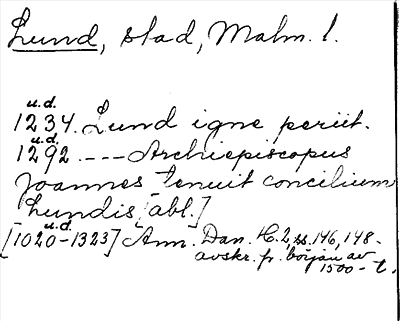 Lund, stad, Malm. l.
u.d.
1234. Lund igne periit.
u.d.
1292. --- Archiepiscopus
Joannes tenuit concilium
Lundis [abl.]
u.d.
[1020-1323] Ann. Dan. H. 2, ss. 146, 148.
avskr. fr. början av
1500-t.